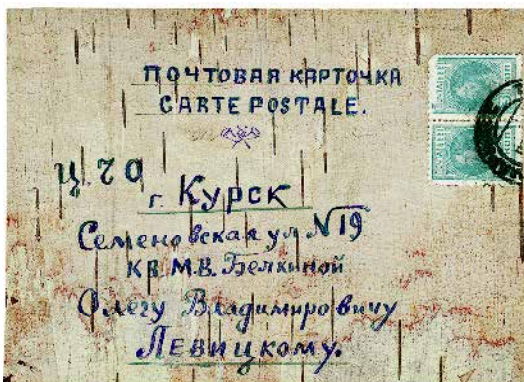 ПОЧТОВАЯ КАРТОЧКА
CARTE POSTALE.
Ц.ЧО
г. Курск
Семеновская ул №19
КВ. М.В. Белкиной
Олегу Владимировичу
Левицкому.